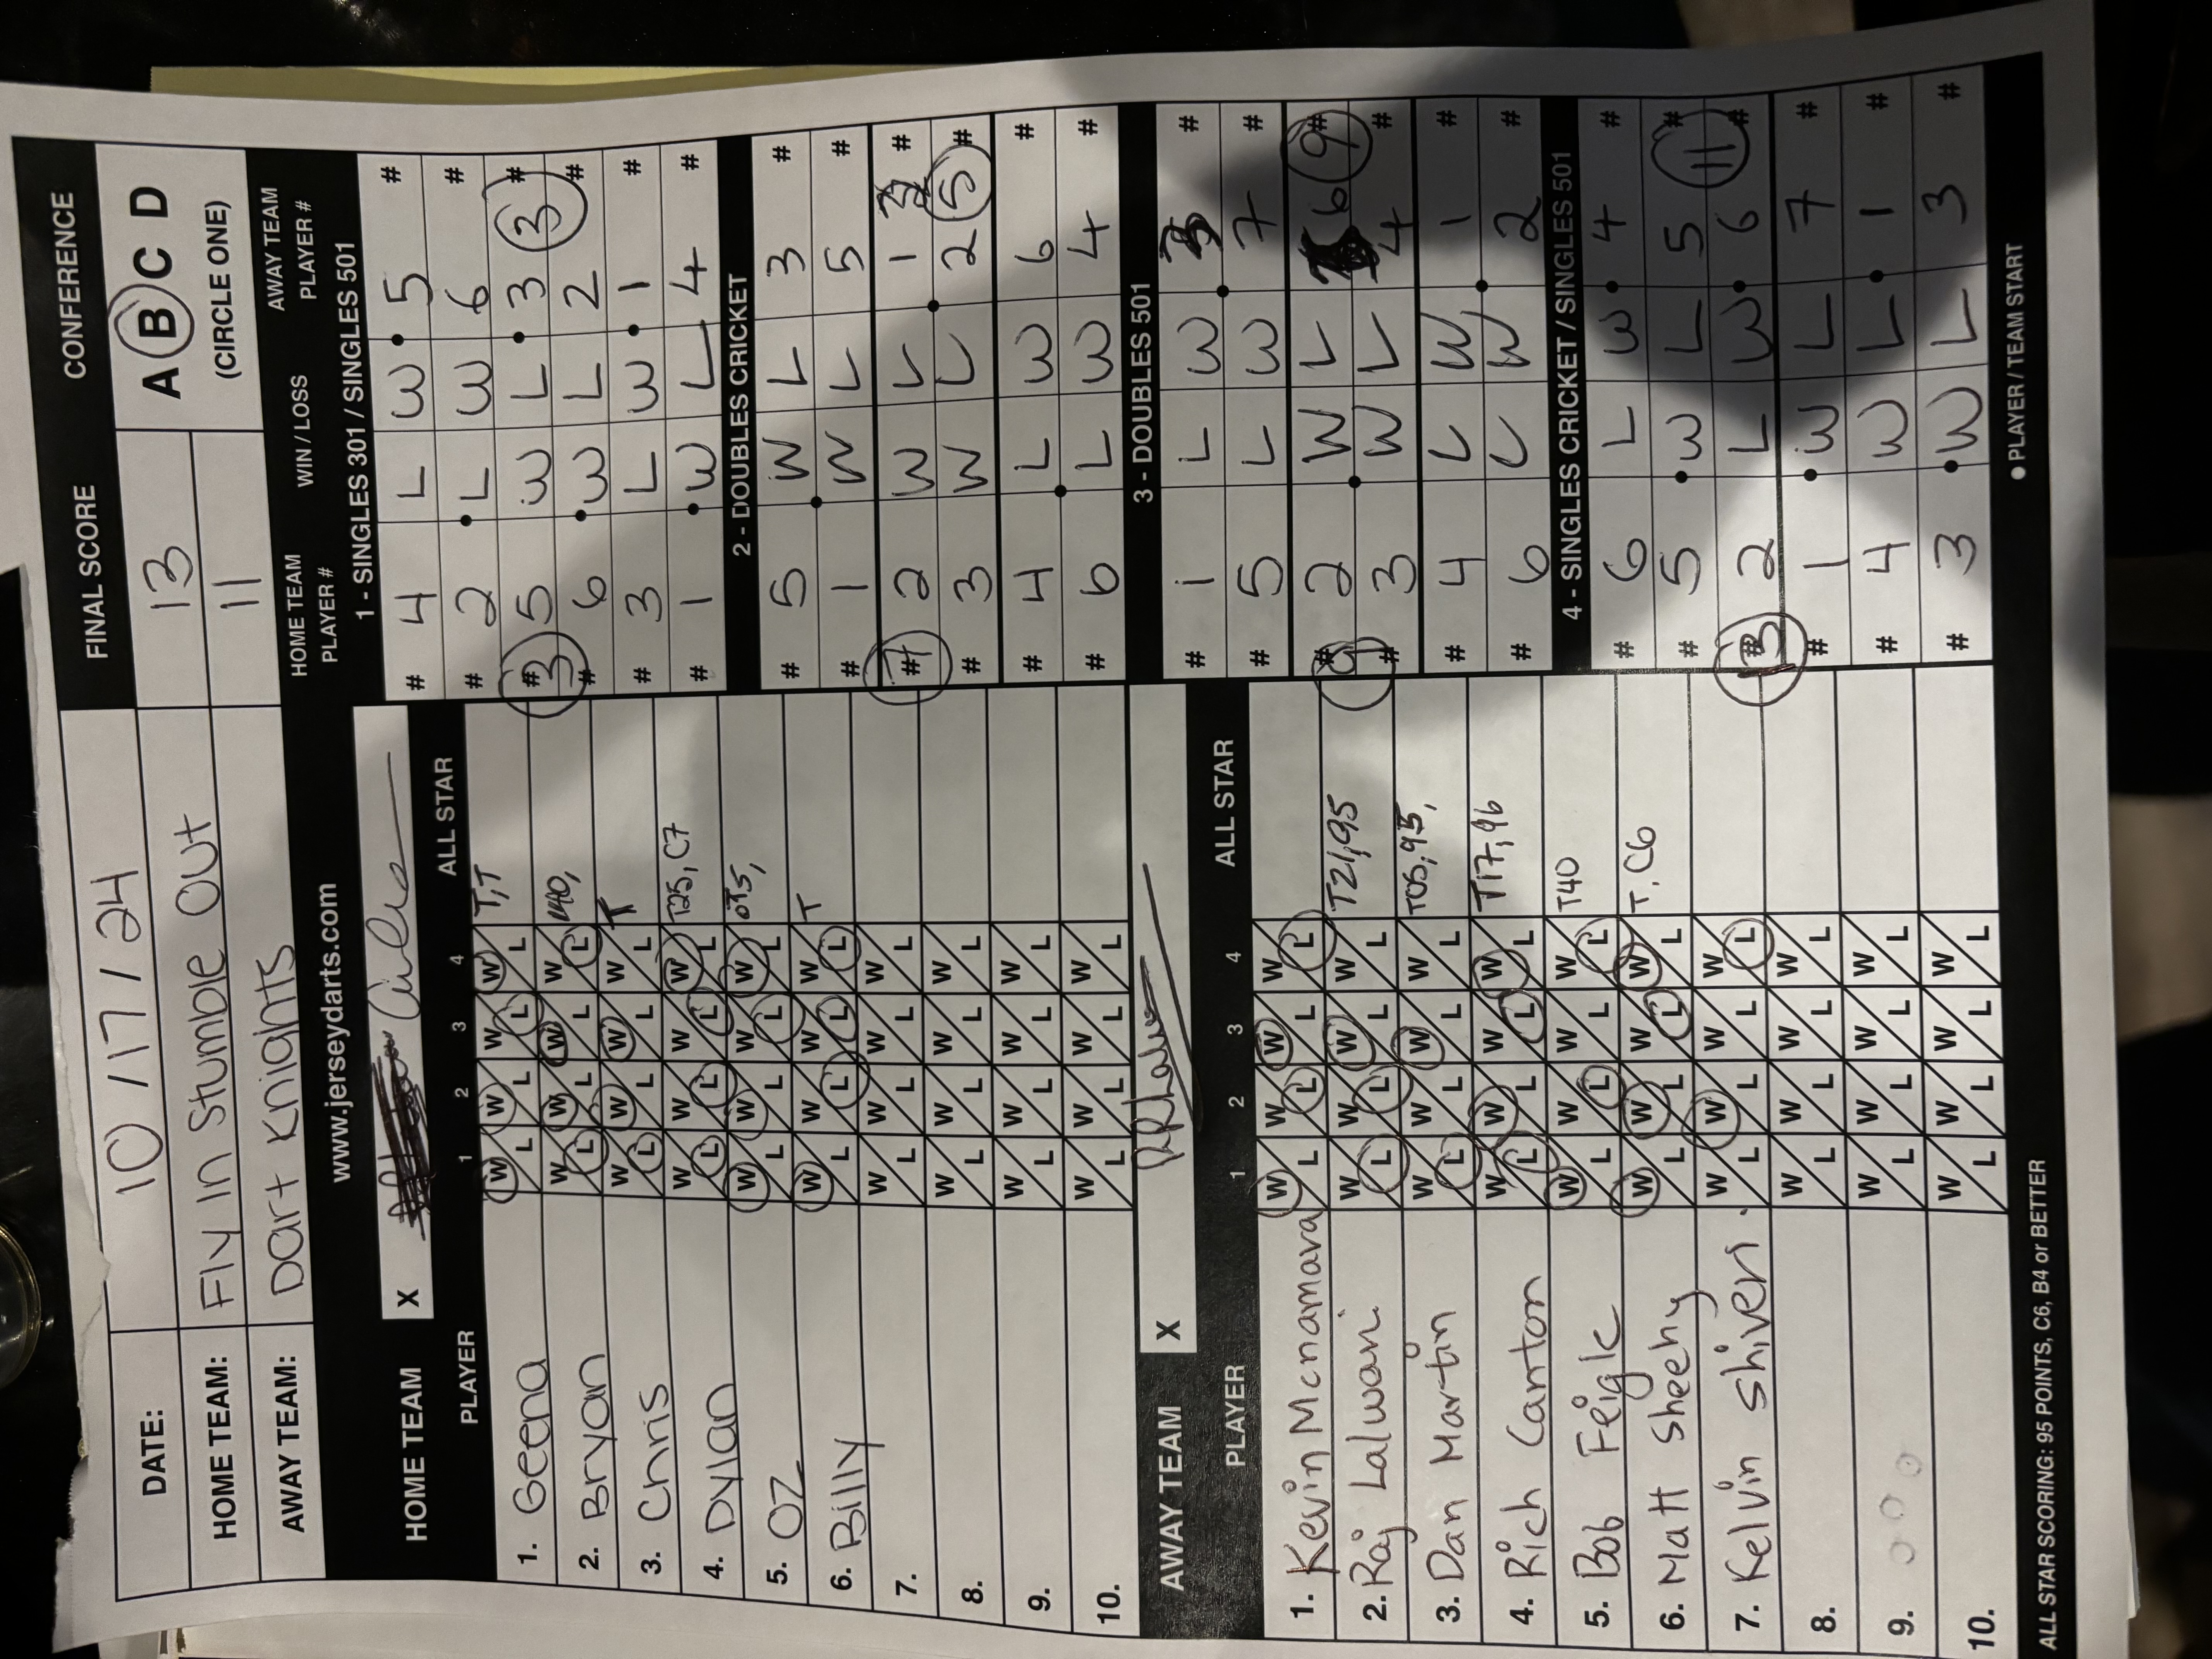 DATE: 10/17/24 FINAL SCORE CONFERENCE
HOME TEAM: Fly In Stumble Out 13 A B C D
AWAY TEAM: Dart Knights 11 (CIRCLE ONE)
www.jerseydarts.com
HOME TEAM X
PLAYER 1 2 3 4 ALL STAR
1. Geena W L W L W L W L T,T
2. Bryan W L W L W L W L 140,
3. Chris W L W L W L W L T
4. Dylan W L W L W L W L T25, C7
5. OZ W L W L W L W L
6. Billy W L W L W L W L T
7. W L W L W L W L
8. W L W L W L W L
9. W L W L W L W L
10. W L W L W L W L
AWAY TEAM X
PLAYER 1 2 3 4 ALL STAR
1. Kevin Mcnamara W L W L W L W L
2. Raj Lalwani W L W L W L W L T21,95
3. Dan Martin W L W L W L W L T05,95,
4. Rich Canton W L W L W L W L T17,96
5. Bob Feigle W L W L W L W L T40
6. Matt Sheehy W L W L W L W L T, C6
7. Kelvin Shiveri W L W L W L W L
8. W L W L W L W L
9. W L W L W L W L
10. W L W L W L W L
ALL STAR SCORING: 95 POINTS, C6, B4 or BETTER
HOME TEAM PLAYER # WIN / LOSS AWAY TEAM PLAYER #
1 - SINGLES 301 / SINGLES 501
# 4 L W 5 #
# 2 L W 6 #
# 3 5 W L 3 3 #
# 6 W L 2 #
# 3 L W 1 #
# 1 W L 4 #
2 - DOUBLES CRICKET
# 5 W L 3 #
# 1 W L 5 #
# 7 2 W L 1 #
# 3 W L 2 5 #
# 4 L W 6 #
# 6 L W 4 #
3 - DOUBLES 501
# 1 L W 3 #
# 5 L W 7 #
# 9 2 W L 6 9 #
# 3 W L 4 #
# 4 L W 1 #
# 6 L W 2 #
4 - SINGLES CRICKET / SINGLES 501
# 6 L W 4 #
# 5 W L 5 11 #
# 13 2 L W 6 #
# 1 W L 7 #
# 4 W L 1 #
# 3 W L 3 #
● PLAYER / TEAM START